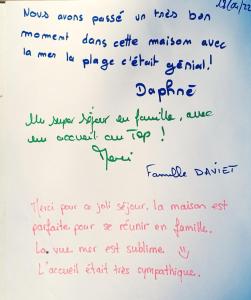 Nous avons passé un très bon
moment dans cette maison avec
la mer la plage c'était génial!
Daphné
Un super séjour en famille, avec
un accueil au Top!
Merci
Famille DAVIET
Merci pour ce joli séjour. la maison est
parfaite pour se réunir en famille.
La vue mer est sublime.
L'accueil était très sympathique.